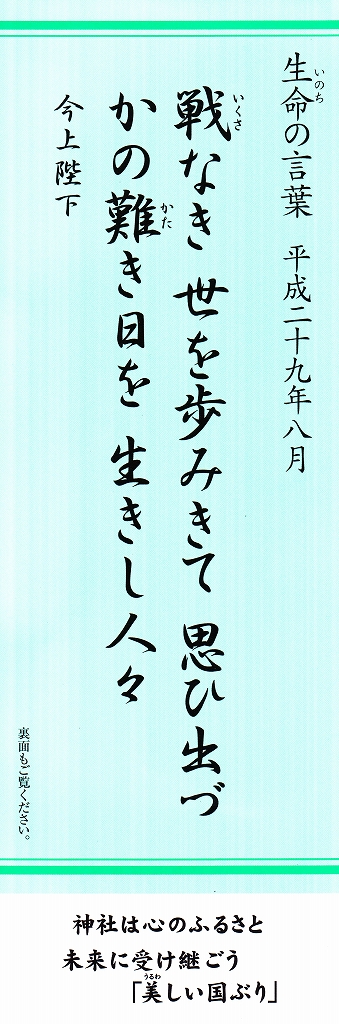 生命の言葉　平成二十九年八月
いのち
戦なき世を歩みきて 思ひ出づ
いくさ
かの難き日を 生きし人々
かた
今上陛下
裏面もご覧ください。
神社は心のふるさと
未来に受け継ごう
「美しい国ぶり」
うるわ